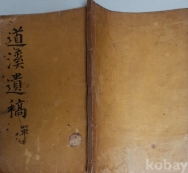 道溪遺稿
kobay